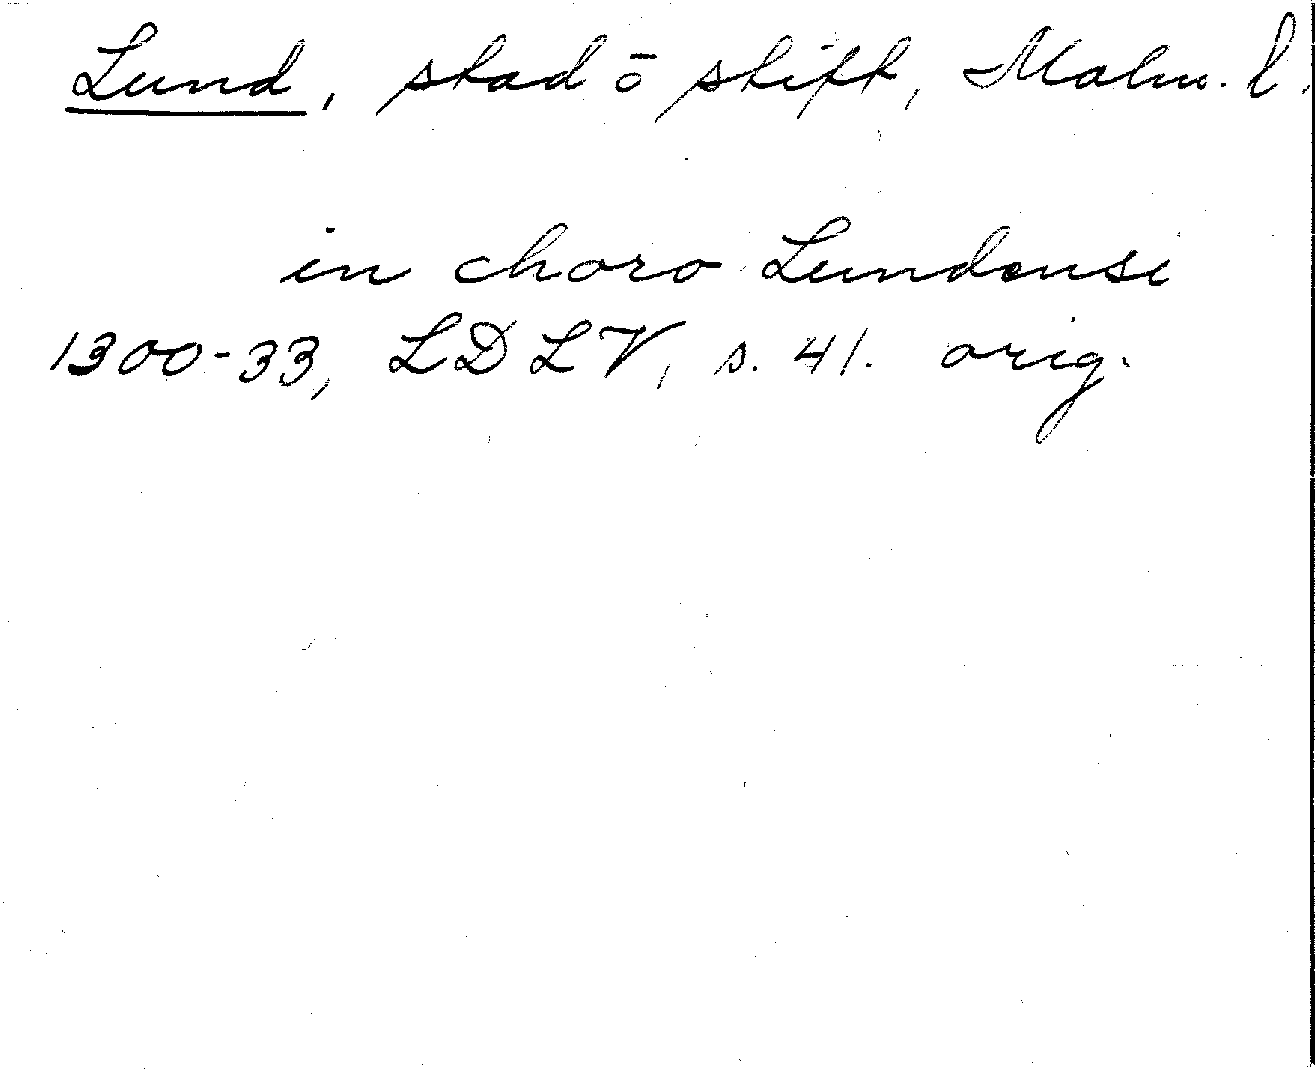 Lund, stad ō stift, Malm. l.
in choro Lundensi
1300-33, LDLV, s. 41. orig.